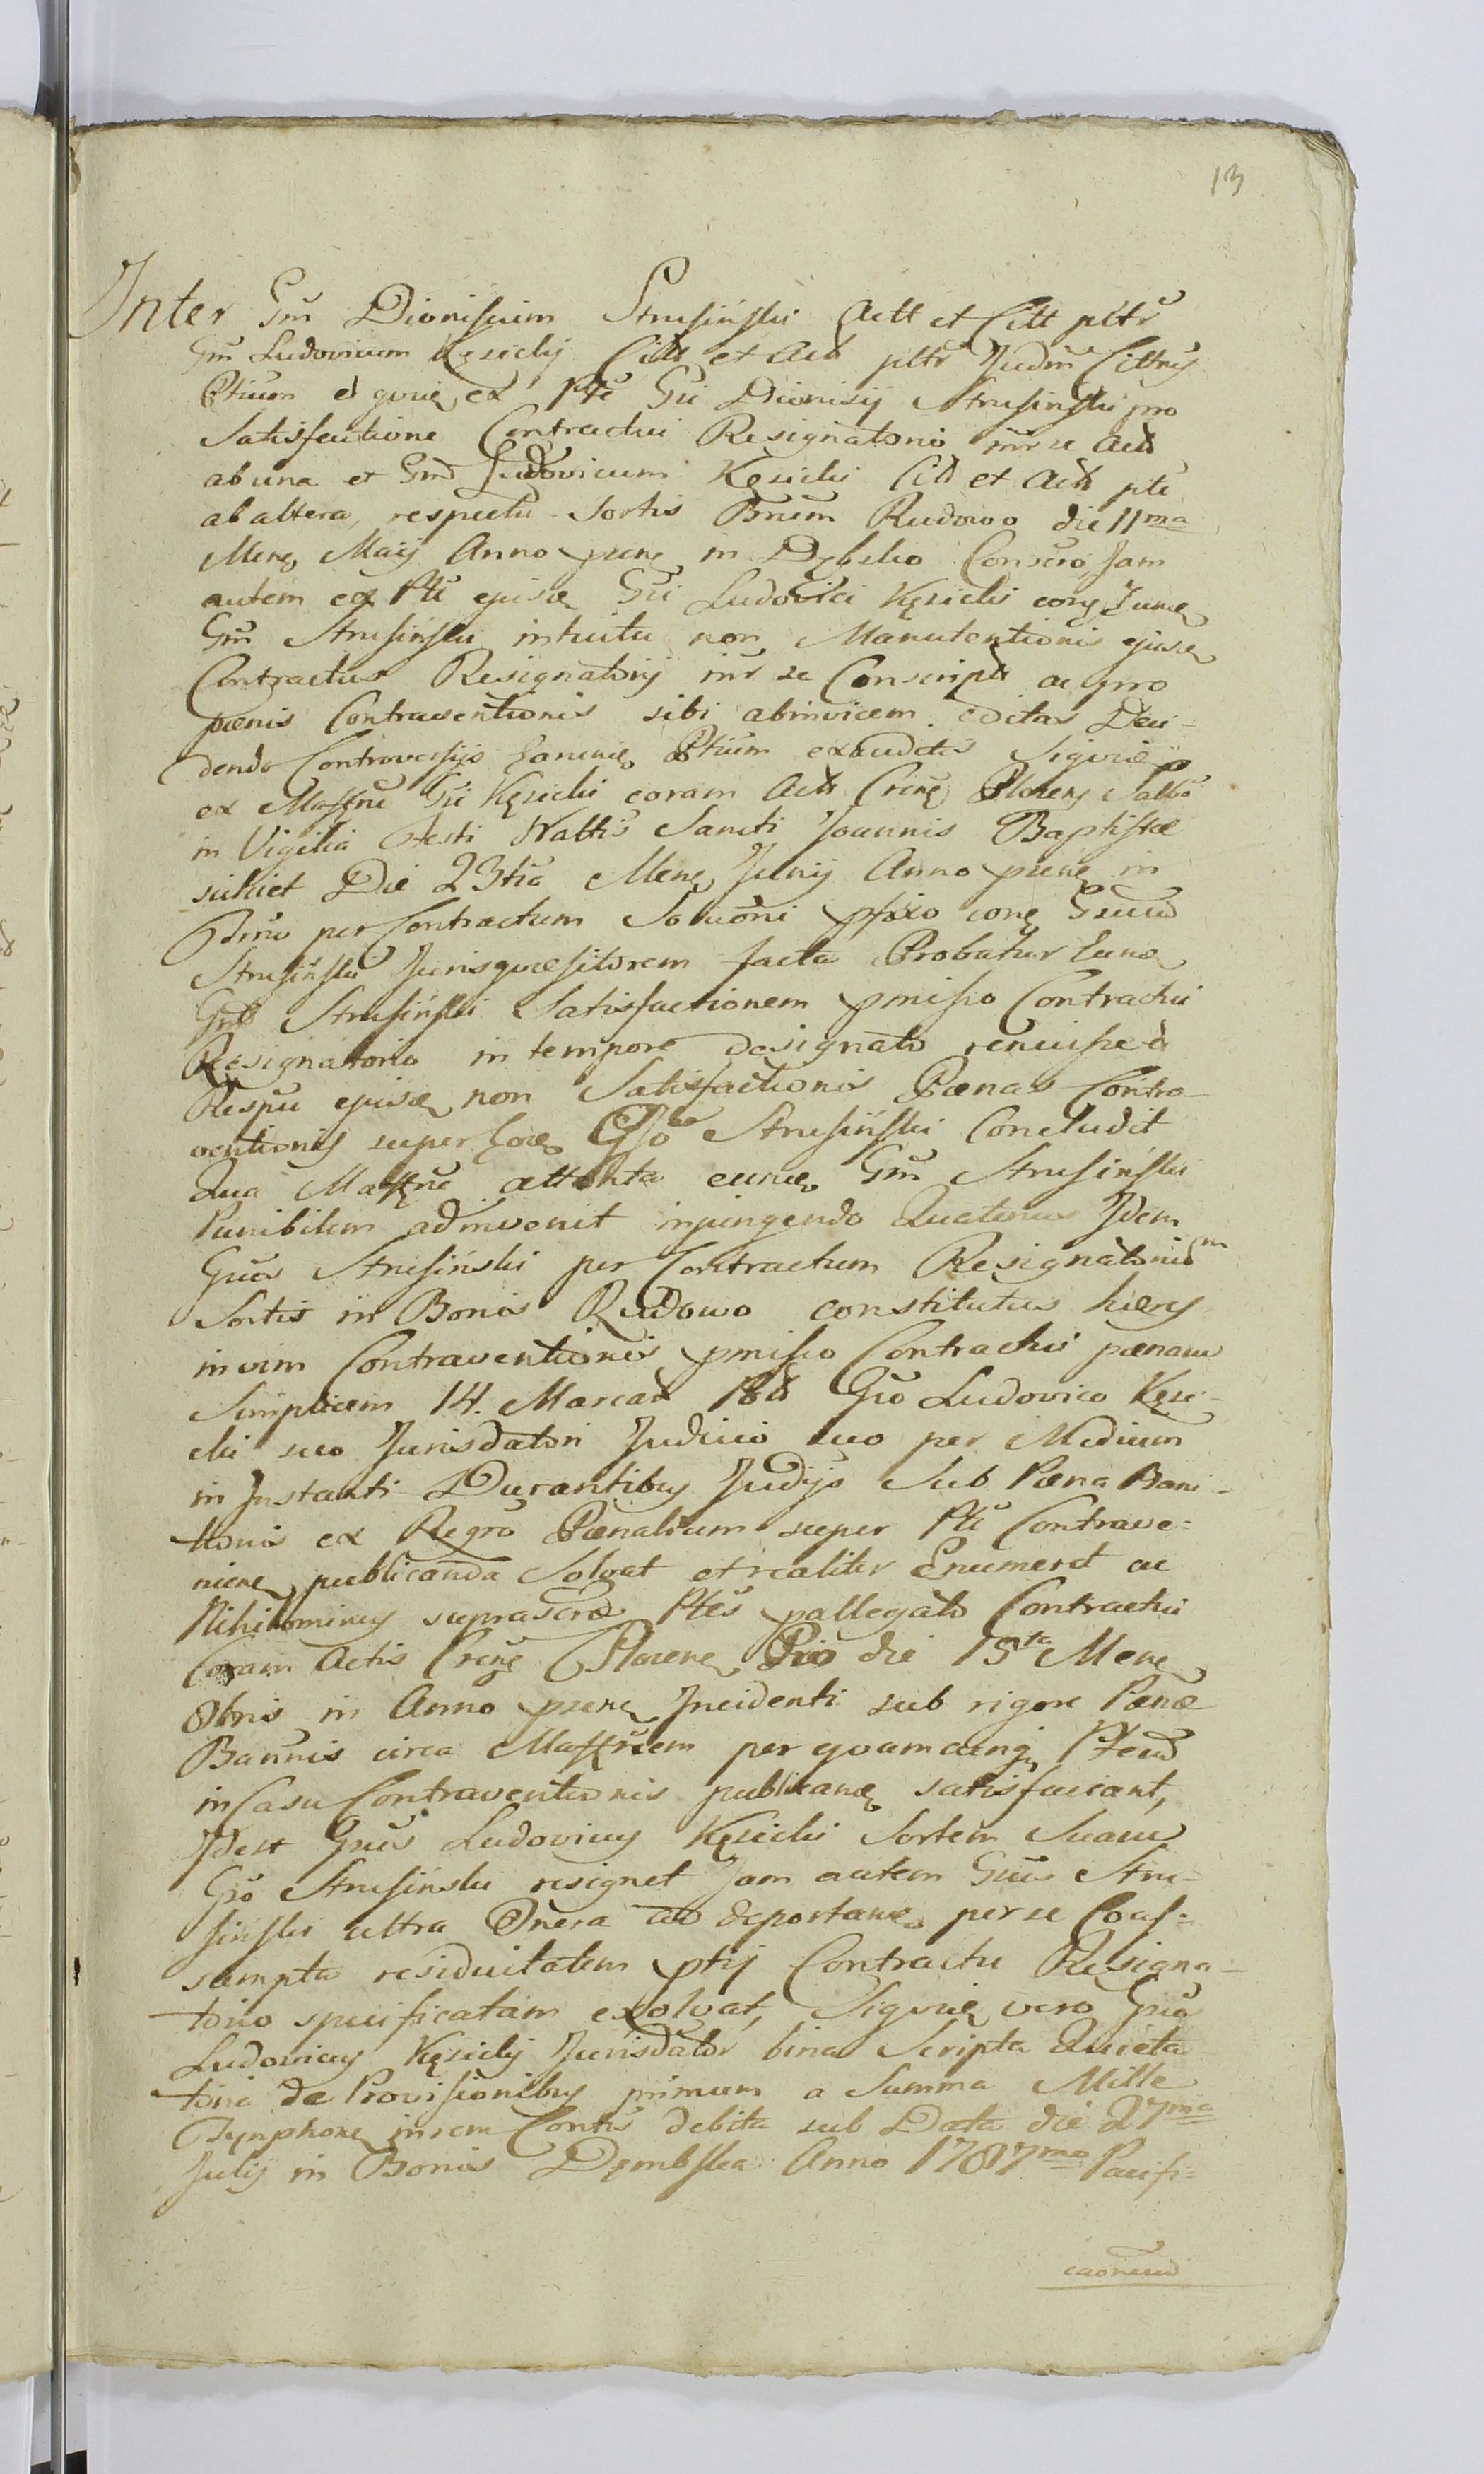 13
Inter Gm Dionisium Strusiński Actt et Citt pltr
Gm Ludovicum Kęsicki Citt et Act pltr Judm Cittny
Ptium et quie ex Pte Gsi Dionisij Strusinski pro
Satisfactione Contractui Resignatorio intr se Act
ab una et Gm Ludovicum Kęsicki Citt et Actt pte
ab altera, respectu Sortis Bnem Rudowo die 11ma
Mene Maij Anno psene in Dębsko Conscto Jam
autem ex Pte ejusd Gsi Ludovici Kęsicki cong Eund
Gm Strusiński intuitu non Manutentionis ejusd
Contractus Resignatorij intr se Conscripti ac pro
pœnis Contraventionis sibi abinvicem editas Deci-
dendo Controversijs earund Ptium exauditis Siquid
ex Mafne Gsi Kęsicki coram Act Crens Plocens Salbo
in Vigilia Festi Nattis Sancti Joannis Baptistæ
scilicet Die 23tia Mene Junij Anno psene in
Tmo per Contractum Soluoni pfixo cong Gsum
Strusiński Jurisquæsitorem facta Probatur Eund
Gm Strusiński Satisfactionem pmisso Contractui
Resignatorio in tempore designato renuisse a
Respu ejusd non Satisfactionis Pœnas Contra-
ventionis super eod Gso Strusiński Concludit
Qua Mafne attenta eund Gm Strusiński
Punibilem adinvenit injungendo Quatenus Idem
Gsus Strusiński per Contractum Resignatorium
Sortis in Bonis Rudowo constitutus hæres
in vim Contraventionis pmisso Contractui pœnam
Simplicem 14. Marcar Polt Gso Ludovico Kęsi-
cki suo Jurisdatori Judicio suo per Medium
in Instanti Durantibus Judijs Sub Pœna Bani-
tionis ex Regro Pœnalium super Pte Contrave=
niene publicanda Solvat et realiter Enumeret ac
Nihilominus suprascræ Ptes pallegato Contractui
Coram Actis Crens Plocens Pio die 15ta Mene
8bris in Anno psene Incidenti sub rigore Pœnæ
Bannis circa Mafrem per quamcunq Pteud
in Casu Contraventionis publicane satisfaciant,
Idest Gsus Ludovicus Kęsicki Sortem Suam
Gso Strusinski resignet Jam autem Gsus Stru=
siński ultra Onera ad deportane per se Coas=
sumpta residuitatem ptij Contractu Resigna-
torio specificatam exolvat, Siquid vero Gsus
Ludovicus Kęsicki Jurisdator bina Scripta Quieta
toria de Provisionibus primum a Summa Mille
Tynphone insem Contis debita sub Data die 27ma
Julij in Bonis Dęmbska Anno 1787mo Pacifi-
caonum